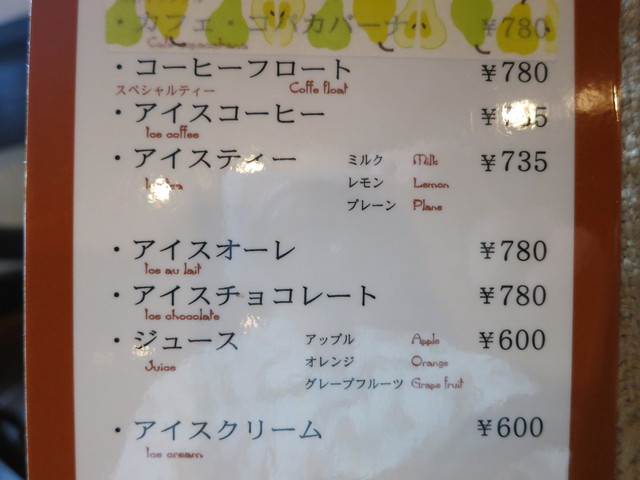 ・カフェ・コパカバーナ ¥780
・コーヒーフロート ¥780
スペシャルティー Coffe float
・アイスコーヒー
Ice coffee
・アイスティー ミルク Milk ¥735
レモン Lemon
プレーン Plane
・アイスオーレ ¥780
Ice au lait
・アイスチョコレート ¥780
Ice chocolate
・ジュース アップル Apple ¥600
Juice オレンジ Orange
グレープフルーツ Grape fruit
・アイスクリーム ¥600
Ice cream